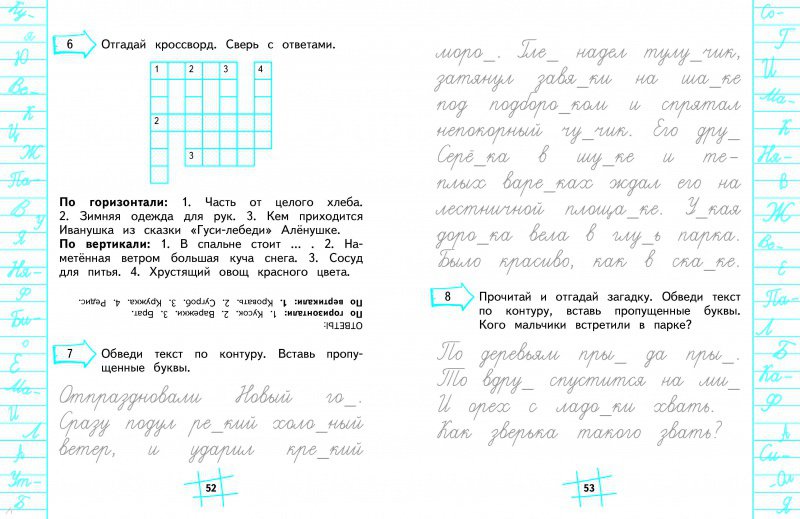 6 Отгадай кроссворд. Сверь с ответами.
1 2 3 4
2
3
По горизонтали: 1. Часть от целого хлеба.
2. Зимняя одежда для рук. 3. Кем приходится
Иванушка из сказки «Гуси-лебеди» Алёнушке.
По вертикали: 1. В спальне стоит ... . 2. На-
метённая ветром большая куча снега. 3. Сосуд
для питья. 4. Хрустящий овощ красного цвета.
ОТВЕТЫ:
По горизонтали: 1. Кусок. 2. Варежки. 3. Брат.
По вертикали: 1. Кровать. 2. Сугроб. 3. Кружка. 4. Редис.
7 Обведи текст по контуру. Вставь пропу-
щенные буквы.
Отпраздновали Новый го_.
Сразу подул ре_кий холо_ный
ветер, и ударил кре_кий
52
моро_. Гле_ надел тулу_чик,
затянул завя_ки на ша_ке
под подборо_ком и спрятал
непокорный чу_чик. Его дру_
Серё_ка в шу_ке и те-
плых варе_ках ждал его на
лестничной площа_ке. У_кая
доро_ка вела в глу_ь парка.
Было красиво, как в ска_ке.
8 Прочитай и отгадай загадку. Обведи текст
по контуру, вставь пропущенные буквы.
Кого мальчики встретили в парке?
По деревьям пры_ да пры_.
То вдру_ спустится на ми_
И орех с ладо_ки хвать.
Как зверька такого звать?
53
я
Ю
Ве-
К
Ц
Ж
Па-
В
У
Я
Ня-
Ф
Би-
о
Ё
Ма-
И
Л
А
Ут-
Б
Со-
Г
И
Ма-
К
Ня-
В
Ж
Во-
Е
Па-
Л
Б
Ка-
Ф
А
Си-
Ол
Я